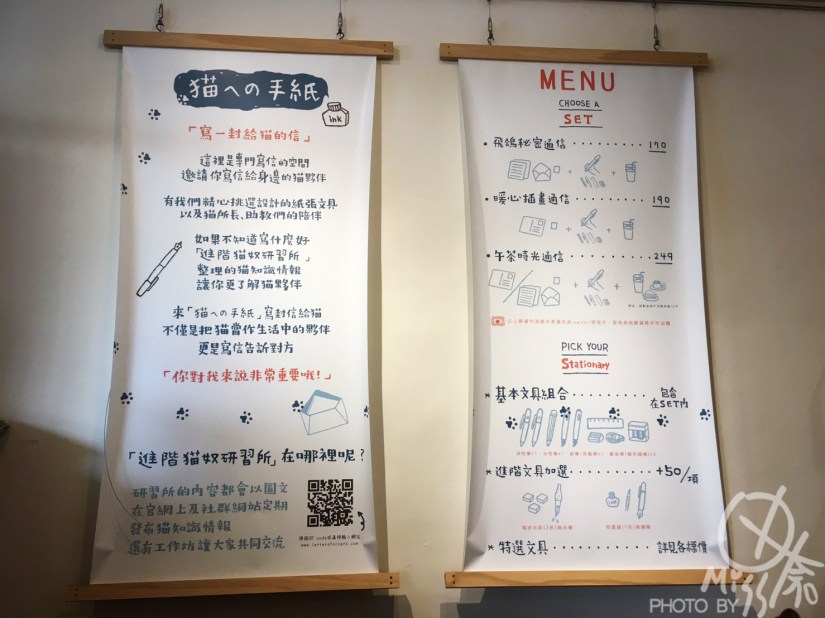 猫への手紙
ink
「寫一封給猫的信」
這裡是專門寫信的空間
邀請你寫信給身邊的猫夥伴
有我們精心挑選設計的紙張文具
以及猫所長、助教們的陪伴
如果不知道寫什麼好
「進階猫奴研習所」
整理的猫知識情報
讓你更了解猫夥伴
來「猫への手紙」寫封信給猫
不僅是把猫當作生活中的夥伴
更是寫信告訴對方
「你對我來說非常重要哦!」
「進階猫奴研習所」在哪裡呢?
研習所的內容都會以圖文
在官網上及社群網站定期
發布猫知識情報
還有工作坊讓大家共同交流
MENU
CHOOSE A
SET
飛鴿秘密通信 170
暖心插畫通信 190
午茶時光通信 249
PICK YOUR
Stationary
基本文具組合 包含
在SET內
進階文具加選 +50/項
特選文具 詳見各標價
PHOTO BY